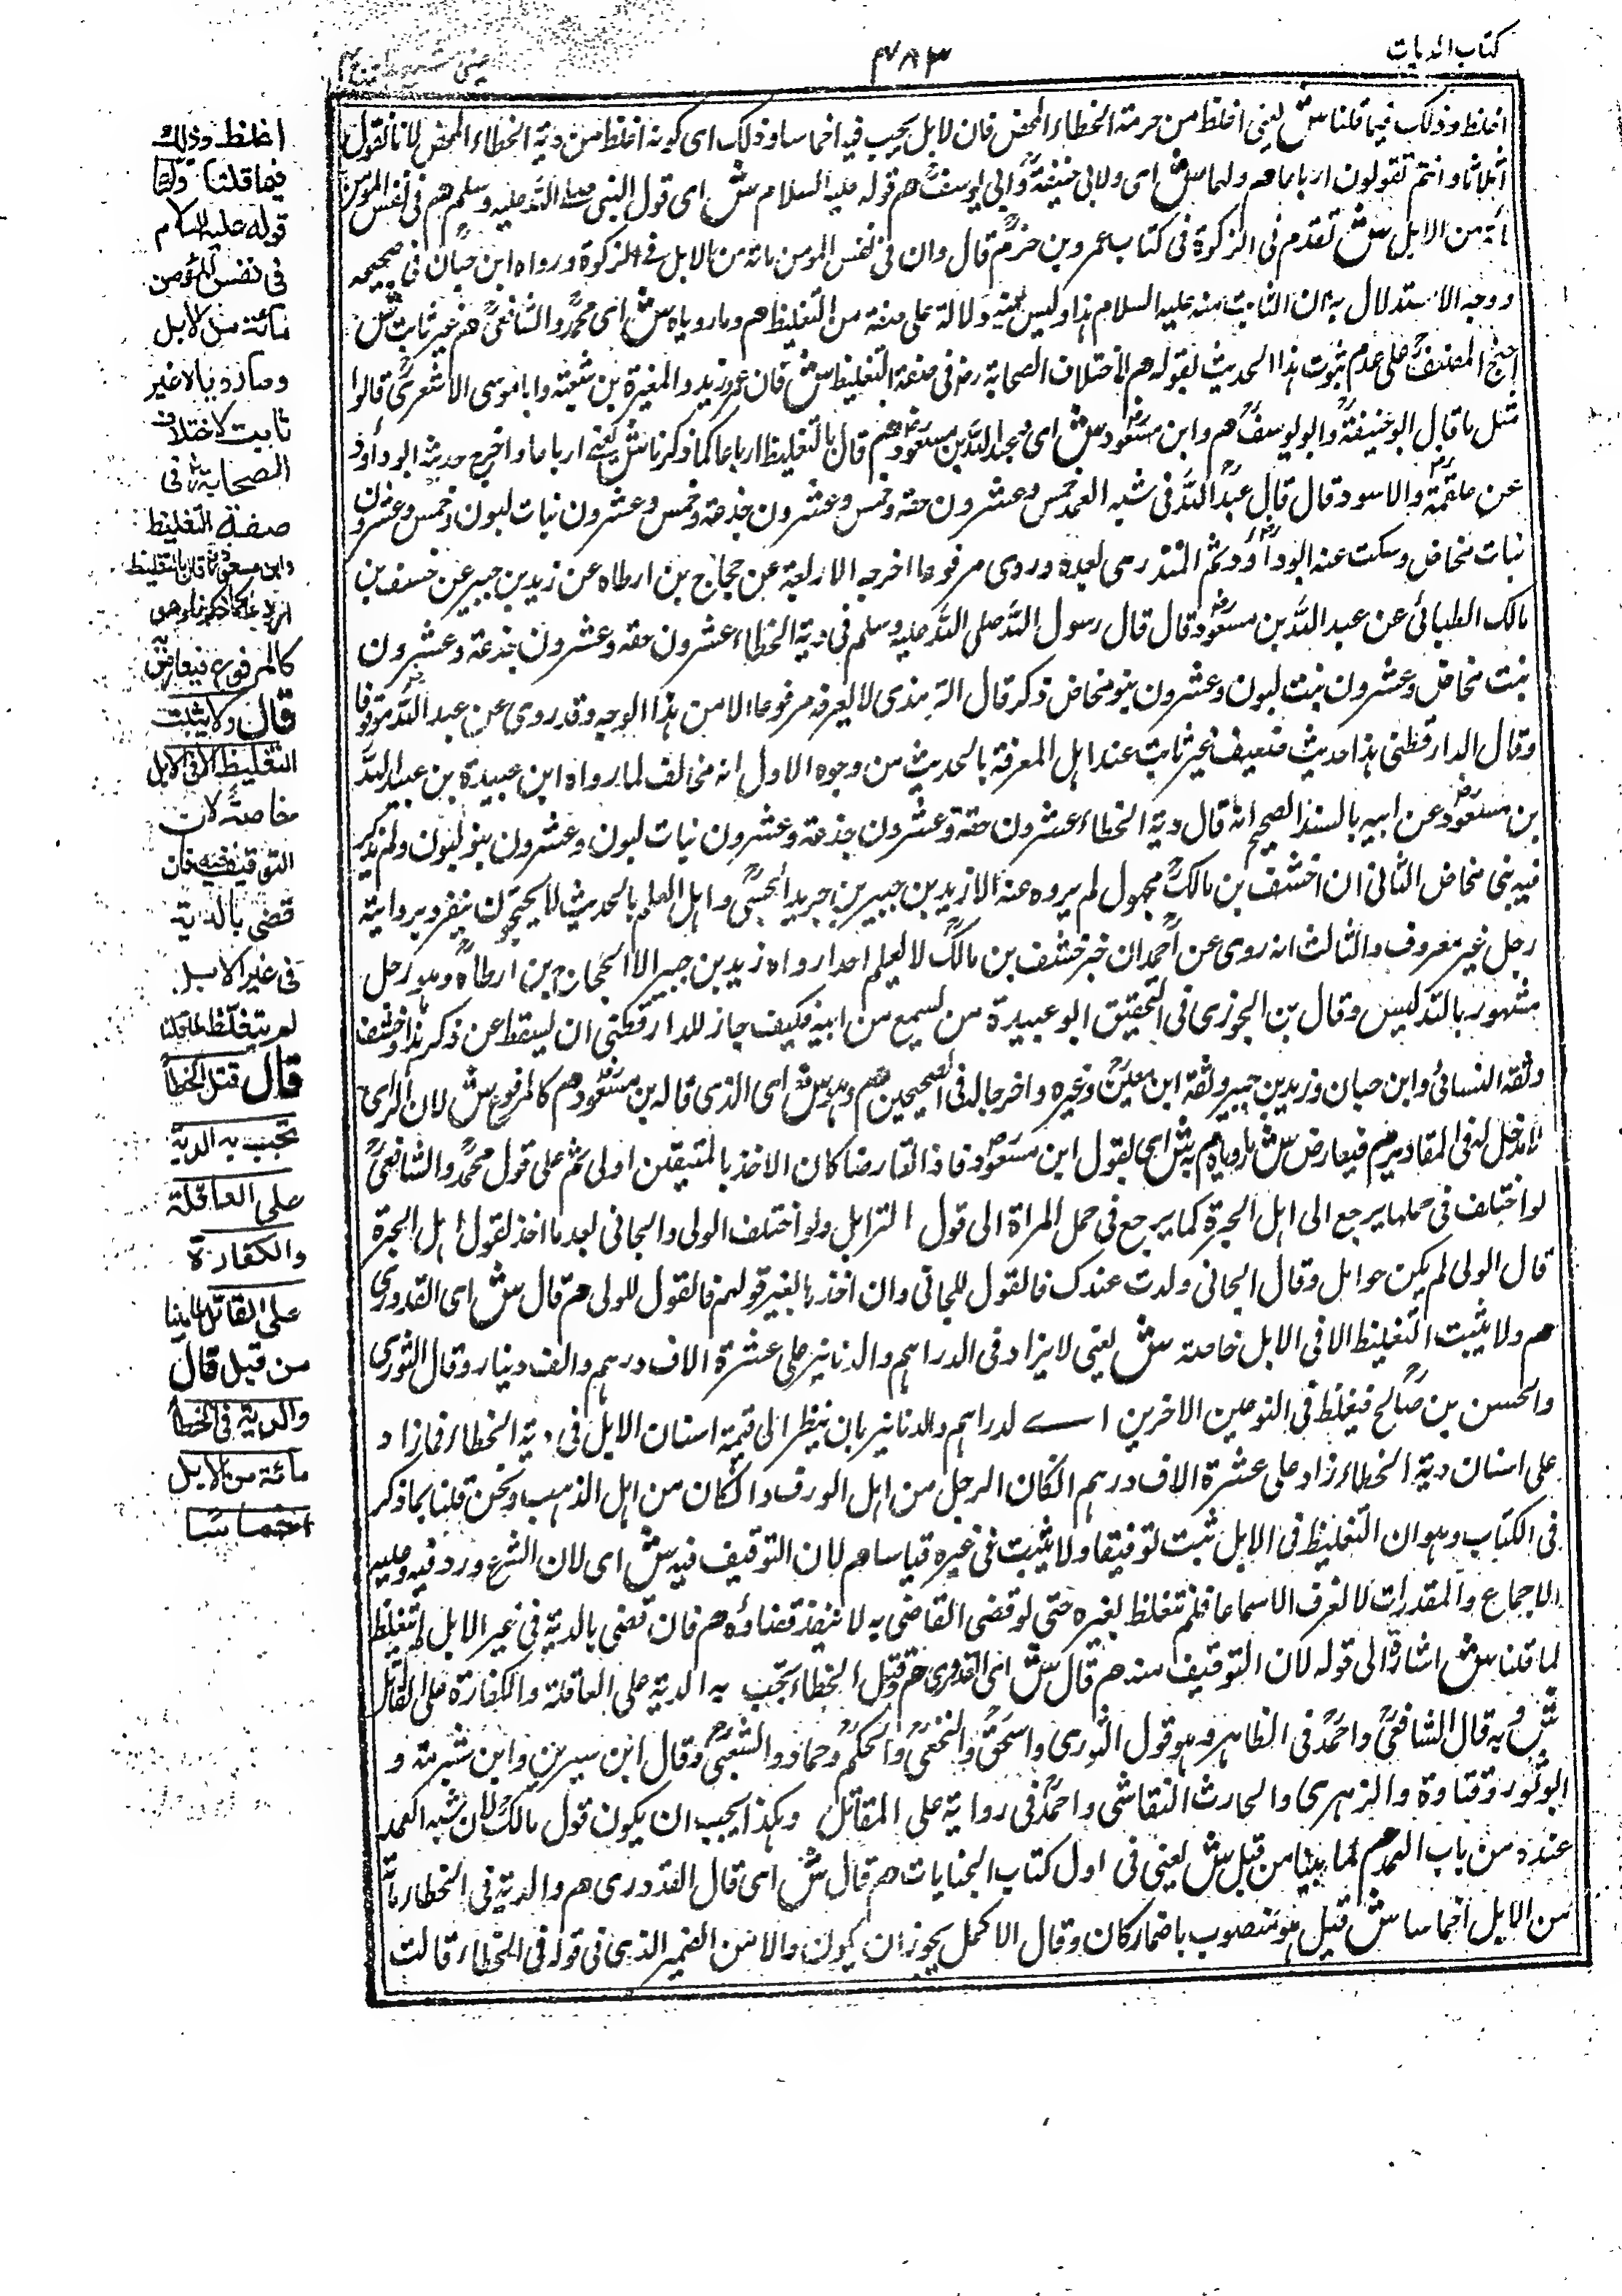 كتاب الديات
٤٨٣
عینی شرح هدایه
اغلظ وذلك فيما قلناش يعنى اغلظ من حرمة الخطاء المحض فان لابل يجب فيه اخماسا وذلك اى كونه اغلظ من دية الخطاء المحض لانا نقول
أثلاثا وانتم تقولون ارباعا هم ولهما ش اى ولابى حنيفةؒ وابى يوسفؒ هم قوله عليه السلام ش اى قول النبى صلى الله عليه وسلم هم فى نفس المومن
مائة من الابل ش تقدم فى الزكوة فى كتاب عمرو بن حزمؓ قال وان فى نفس المومن مائة من الابل فى الزكوة ورواه ابن حبان فى صحيحه
ووجه الاستدلال به ان الثابت منه عليه السلام هذا وليس فيه دلالة على صفة من التغليظ هم وما روياه ش اى محمدؒ والشافعىؒ هم غير ثابت ش
احتج المصنفؒ على عدم ثبوت هذا الحديث بقوله هم لاختلاف الصحابة رضه فى صفة التغليظ ش فان عمر وزيد والمغيرة بن شعبة وابا موسى الاشعرىؓ قالوا
مثل ما قال ابو حنيفةؒ وابو يوسفؒ هم وابن مسعودؓ ش اى وعبد الله بن مسعودؓ هم قال بالتغليظ ارباعا كما ذكرنا ش يعنى ارباعا واخرج حديثه ابو داود
عن علقمةؓ والاسود قال قال عبد اللهؓ فى شبه العمد خمس وعشرون حقه وخمس وعشرون جذعة وخمس وعشرون بنات لبون وخمس وعشرون
بنات مخاض وسكت عنه ابو داؤدؒ ثم المنذرى بعده وروى مرفوعا اخرجه الاربعة عن حجاج بن ارطاه عن زيد بن جبير عن خشف بن
مالك الطائى عن عبد الله بن مسعودؓ قال قال رسول الله صلى الله عليه وسلم فى دية الخطاء عشرون حقه وعشرون جذعة وعشرون
بنت مخاض وعشرون بنت لبون وعشرون بنو مخاض ذكر قال الترمذى لا نعرفه مرفوعا الا من هذا الوجه وقد روى عن عبد اللهؓ موقوفا
وقال الدارقطنى هذا حديث ضعيف غير ثابت عند اهل المعرفة بالحديث من وجوه الاول انه مخالف لما رواه ابن عبيدة بن عبد الله
بن مسعودؓ عن ابيه بالسند الصحيح انه قال دية الخطاء عشرون حقة وعشرون جذعة وعشرون بنات لبون وعشرون بنو لبون ولم يذكر
فيه بنى مخاض الثانى ان اخشف بن مالكؒ مجهول لم يروه عنه الا زيد بن جبير بن جريد الجشمىؒ واهل العلم بالحديث لا يحتجون ينفرد بروايته
رجل غير معروف والثالث انه روى عن احمدؒ ان خبر خشف بن مالكؒ لا يعلم احدا رواه زيد بن جبير الا الحجاج بن ارطاةؒ وهو رجل
مشهور بالتدليس وقال بن الجوزى فى التحقيق ابو عبيدة من لسمع من ابيه فكيف جاز للدارقطنى ان يسقط عن ذكر هذا وخشف
وثقه النسائىؒ وابن حبان وزيد بن جبير وثقه ابن معينؒ وغيره واخرجا له فى الصحيحين هم وهو ش اى الذى قاله بن مسعودؓ هم كالمرفوع ش لان الراى
لا مدخل له فى المقادير هم فيعارض ش ما روياه هم به ش اى بقول ابن مسعودؓ فاذا تعارضا كان الاخذ بالمتيقن اولى ثم على قول محمدؒ والشافعىؒ
لو اختلف فى حملها يرجع الى اهل الخبرة كما يرجع فى حمل المراة الى قول القوابل ولو اختلف الولى والجانى بعد ما اخذ لقول اهل الخبرة
قال الولى لم يكن حوامل وقال الجانى ولدت عندك فالقول للجانى وان اخذ بالغير قولهم فالقول للولى هم قال ش اى القدورى
هم ولا يثبت التغليظ الا فى الابل خاصة ش يعنى لا يزاد فى الدراهم والدنانير على عشرة الاف درهم والف دينار وقال الثورى
والحسن بن صالحؒ فيغلظ فى النوعين الاخرين اے لدراهم والدنانير بان ينظر الى قيمة اسنان الابل فى دية الخطاء فما زاد
على اسنان دية الخطاء زاد على عشرة الاف درهم ان كان الرجل من اهل الورق وان كان من اهل الذهب ونحن قلنا بما ذكر
فى الكتاب وهو ان التغليظ فى الابل ثبت توفيقا ولا يثبت غى غيره قياسا هم لان التوقيف فيه ش اى لان الشرع ورد فيه وعليه
الاجماع والمقدرات لا تعرف الا سماعا فلم تغلظ بغيره حتى لو قضى القاضى به لا ينفذ قضاؤه هم فان قضى بالدية فى غير الابل لم تغلظ
لما قلنا ش اشارة الى قوله لان التوقيف منه هم قال ش اى القدورى هم وقتل الخطاء تجب به الدية على العاقلة والكفارة على القاتل
ش وبه قال الشافعىؒ واحمدؒ فى الظاهر وهو قول الثورى واسحقؒ والنخعىؒ والحكمؒ وحماد والشعبىؒ وقال ابن سيرين وابن شبرمة و
ابو ثور وقتاوة والزهرى والحارث النقاشى واحمدؒ فى رواية على المقاتل وهكذا يجب ان يكون قول مالكؒ لان شبه العمد
عنده من باب العمد هم لما بينا من قبل ش يعنى فى اول كتاب الجنايات هم قال ش اى قال القدورى هم والدية فى الخطاء مائة
من الابل اخماسا ش قيل هو منصوب باضمار كان وقال الاكمل يجوز ان يكون والا من الضمير الذى فى قوله فى الخطاء قالت
اغلظ وذلك
فيما قلنا ولنا
قوله عليه السلام
فى نفس المؤمن
مائة من الابل
وما رويا لا غير
ثابت لاختلاف
الصحابة رض فى
صفة التغليظ
وابن مسعود رض قال بالتغليظ
ارباعا كما ذكرنا وهو
كالمرفوع فيعارض به
قال ولا يثبت
التغليظ الا فى الابل
خاصة لان
التوقيف فيه فان
قضى بالدية
فى غير الابل
لم تتغلظ لما قلنا
قال قتل الخطأ
تجب به الدية
على العاقلة
والكفارة
على القاتل لما بينا
من قبل قال
والدية فى الخطأ
مائة من الابل
اخماسا